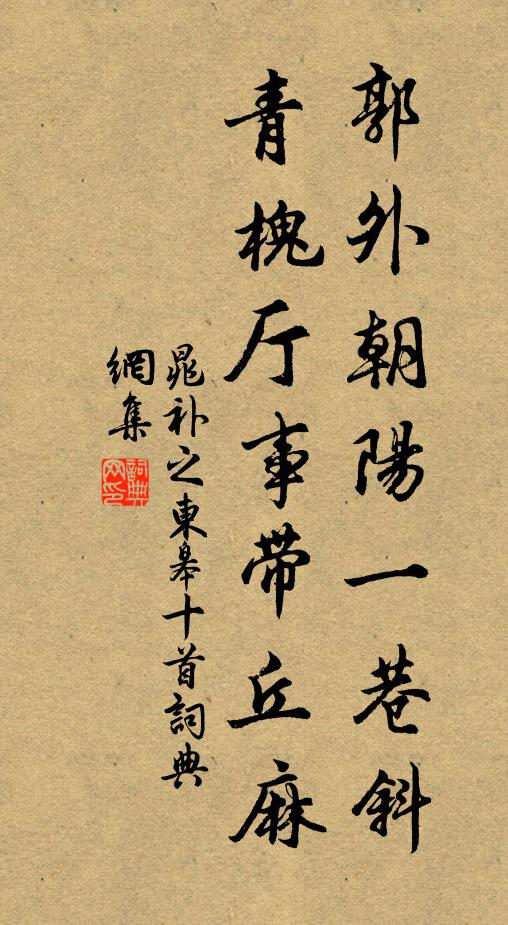 郭外朝陽一巷斜
青槐厅事帶丘麻
晁补之東皋十首詞典
網集
詞典网印